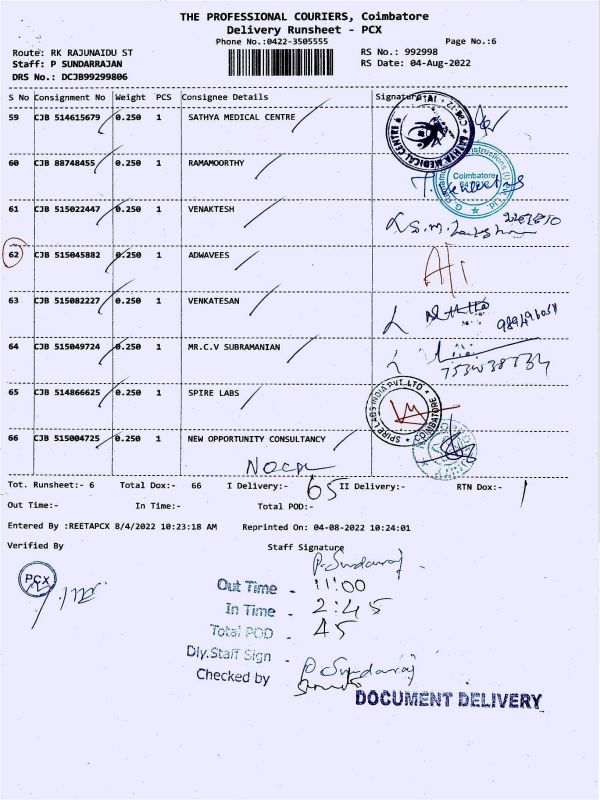 THE PROFESSIONAL COURIERS, Coimbatore
Delivery Runsheet - PCX
Phone No.:0422-3505555 Page No.:6
Route: RK RAJUNAIDU ST RS No.: 992998
Staff: P SUNDARRAJAN RS Date: 04-Aug-2022
DRS No.: DCJB99299806
S No Consignment No Weight PCS Consignee Details Signature
59 CJB 514615679 0.250 1 SATHYA MEDICAL CENTRE
SATHYA MEDICAL CENTRE
60 CJB 88748455 0.250 1 RAMAMOORTHY
Coimbatore
61 CJB 515022447 0.250 1 VENAKTESH
62 CJB 515045882 0.250 1 ADWAVEES
63 CJB 515082227 0.250 1 VENKATESAN
64 CJB 515049724 0.250 1 MR.C.V SUBRAMANIAN
65 CJB 514866625 0.250 1 SPIRE LABS
SPIRE LABS INDIA PVT. LTD COIMBATORE
66 CJB 515004725 0.250 1 NEW OPPORTUNITY CONSULTANCY
Tot. Runsheet:- 6 Total Dox:- 66 I Delivery:- 65 II Delivery:- RTN Dox:- 1
Out Time:- In Time:- Total POD:-
Entered By :REETAPCX 8/4/2022 10:23:18 AM Reprinted On: 04-08-2022 10:24:01
Verified By Staff Signature
PCX
P. Sundaraj
Out Time - 11:00
In Time - 2:45
Total POD - 45
Dly.Staff Sign - P. Sundaraj
Checked by
DOCUMENT DELIVERY